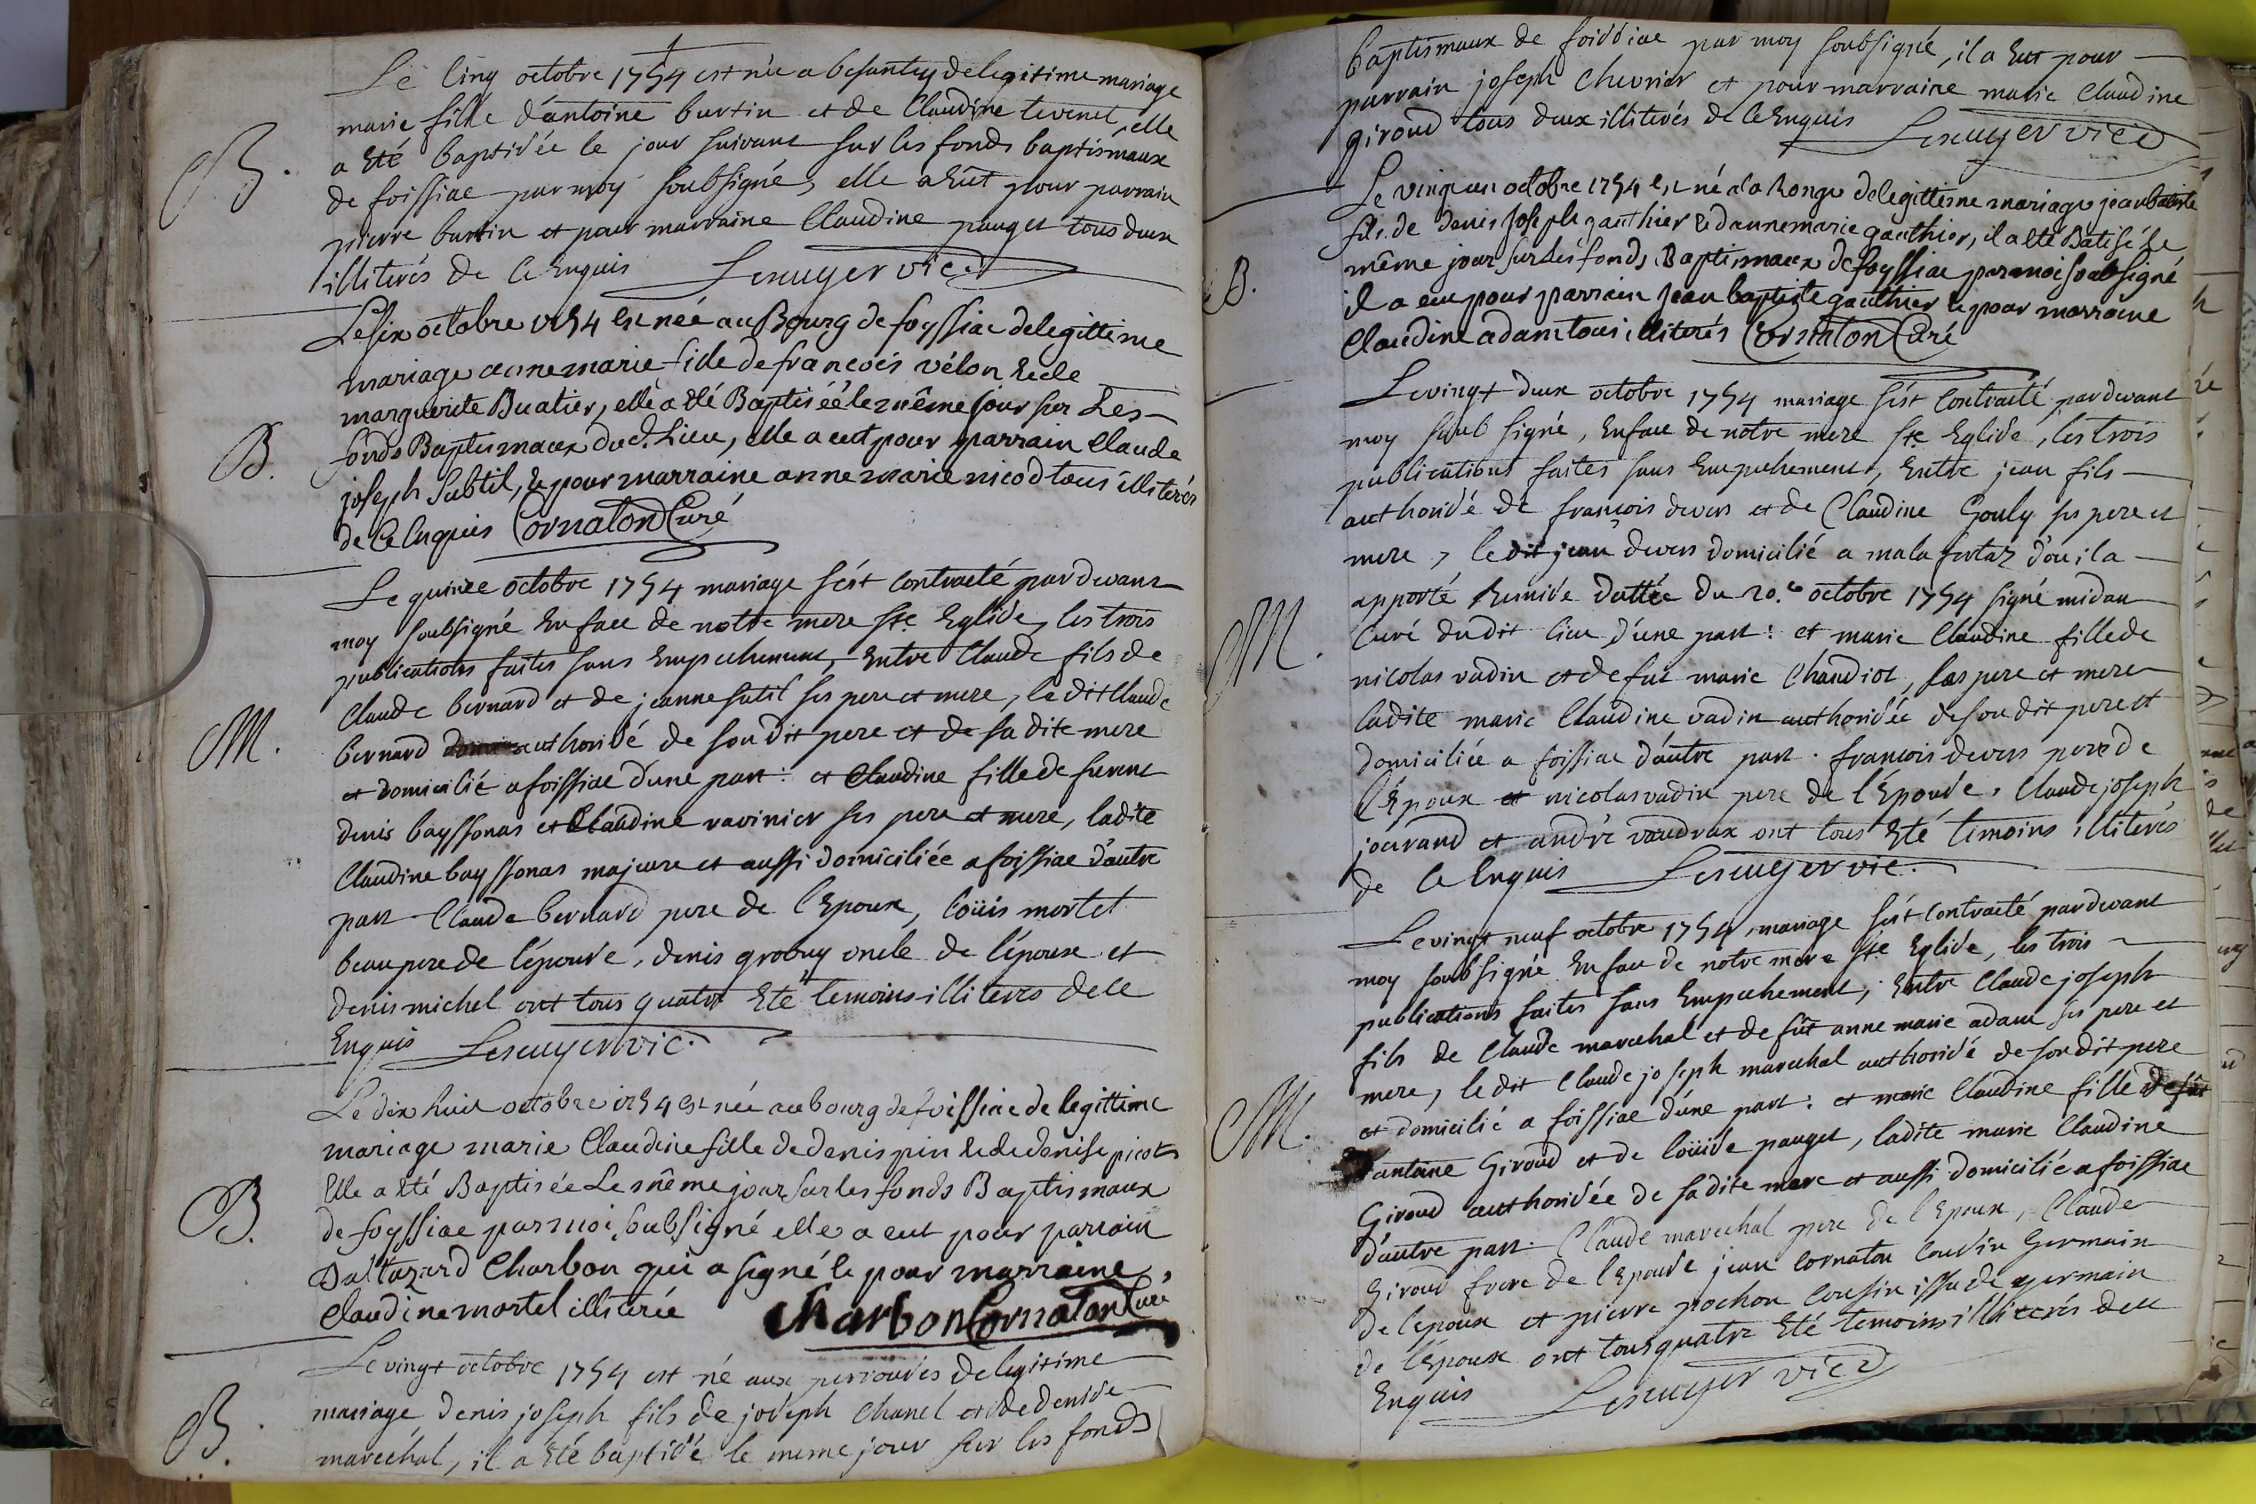 Le Cinq octobre 1754 est née a besantey de legitime mariage
marie fille d'antoine burtin et de Claudine tevenet, elle
a Eté baptisée le jour suivant sur les fonds baptismaux
B. de foissiae par moy soubsigné, elle a Eût pour parrain
pierre burtin et pour marraine Claudine pauget tous deux
illiterés de ce Enquis Lescuyer vic.
Le six octobre 1754 Est née au Bourg de foyssiae de legittime
mariage anne marie fille de francois vélon et de
marguerite Buatier, elle a été Baptiséé le même jour sur Les
B. fonds Baptismaux dud. Lieu, elle a eut pour parrain Claude
joseph Subtil, & pour marraine anne marie nicod tous illiterés
de Ce Enquis Cornaton Curé
Le quinze octobre 1754 mariage s'ést Contracté pardevant
moy soubsigné En face de notre mere Ste Eglise, les trois
publications faites sans Empechement, Entre Claude fils de
Claude bernard et de jeanne sutil ses pere et mere, le dit Claude
M. bernard authorisé de son dit pere et de sa dite mere
et domicilié a foissiae d'une part: et Claudine fille de furent
denis bayssonas et Claudine ravinier ses pere et mere, ladite
Claudine bayssonas majeure et aussi domiciliée a foissiae d'autre
part. Claude bernard pere de l'Epoux, loüis mortel
beaupere de l'épouse, denis grobuy oncle de l'époux et
denis michel ont tous quatre Eté temoins illiterés de ce
Enquis Lescuyer vic.
Le dix huit octobre 1754 est née au bourg de foissiae de legittime
mariage marie Claudine fille de denis pin & de denise picot
Elle a été Baptisée Le même jour sur les fonds Baptismaux
B. de foyssiae par moi soubsigné elle a eut pour parrain
Baltazard Charbon qui a signé & pour marraine,
Claudine mortel illiterée Charbon Cornaton Curé
Le vingt octobre 1754 est né aux perrouses de legitime
mariage denis joseph fils de joseph Chanel et de denise
B. maréchal, il a été baptisé le meme jour sur les fonds
baptismaux de foissiae par moy soubsigné, il a Eut pour
parrain joseph Chevrier et pour marraine marie Claudine
giroud tous deux illiterés de ce Enquis Lescuyer vic.
Le vingt un octobre 1754 Est né a la Ronge de legittime mariage jean batiste
fils de denis Joseph gauthier & d'anne marie gauthier, il a été Batisé le
même jour sur Les fonds Baptismaux de foyssiae par moi soubsigné
B. il a eu pour parrain Jean baptiste gauthier & pour marraine
Claudine adam tous illiterés Cornaton Curé
Le vingt deux octobre 1754 mariage s'ést Contracté pardevant
moy soubsigné, En face de notre mere Ste Eglise, les trois
publications faites sans Empechement, Entre jean fils
authorisé de françois devers et de Claudine Gouly ses pere et
mere, le dit jean devers domicilié a malafretaz d'ou il a
apporté Remise dattée du 20.e octobre 1754 signé midan
M. Curé dudit lieu d'une part: et marie Claudine fille de
nicolas vadin et de fut marie Chaudiot, ses pere et mere
ladite marie Claudine vadin authorisée de son dit pere et
domiciliée a foissiae d'autre part. françois devers pere de
l'Epoux et nicolas vadin pere de l'Epouse, Claude joseph
jouvand et andré vaudrux ont tous Eté temoins illiterés
de Ce Enquis Lescuyer vic.
Le vingt neuf octobre 1754 mariage s'ést Contracté pardevant
moy soubsigné En face de notre mere Ste Eglise, les trois
publications faites sans Empechement, Entre Claude joseph
fils de Claude marechal et de fut anne marie adam ses pere et
mere, le dit Claude joseph marechal authorisé de son dit pere
M. et domicilié a foissiae d'une part: et marie Claudine fille de fût
antoine Giroud et de loüise pauget, ladite marie Claudine
Giroud authorisée de sa dite mere et aussi domiciliée a foissiae
d'autre part. Claude marechal pere de l'Epoux, Claude
Giroud frere de l'Epouse jean Cornaton Cousin Germain
de l'epoux et pierre pochon Cousin issu de germain
de l'Epoux ont tous quatre Eté temoins illiterés de ce
Enquis Lescuyer vic.